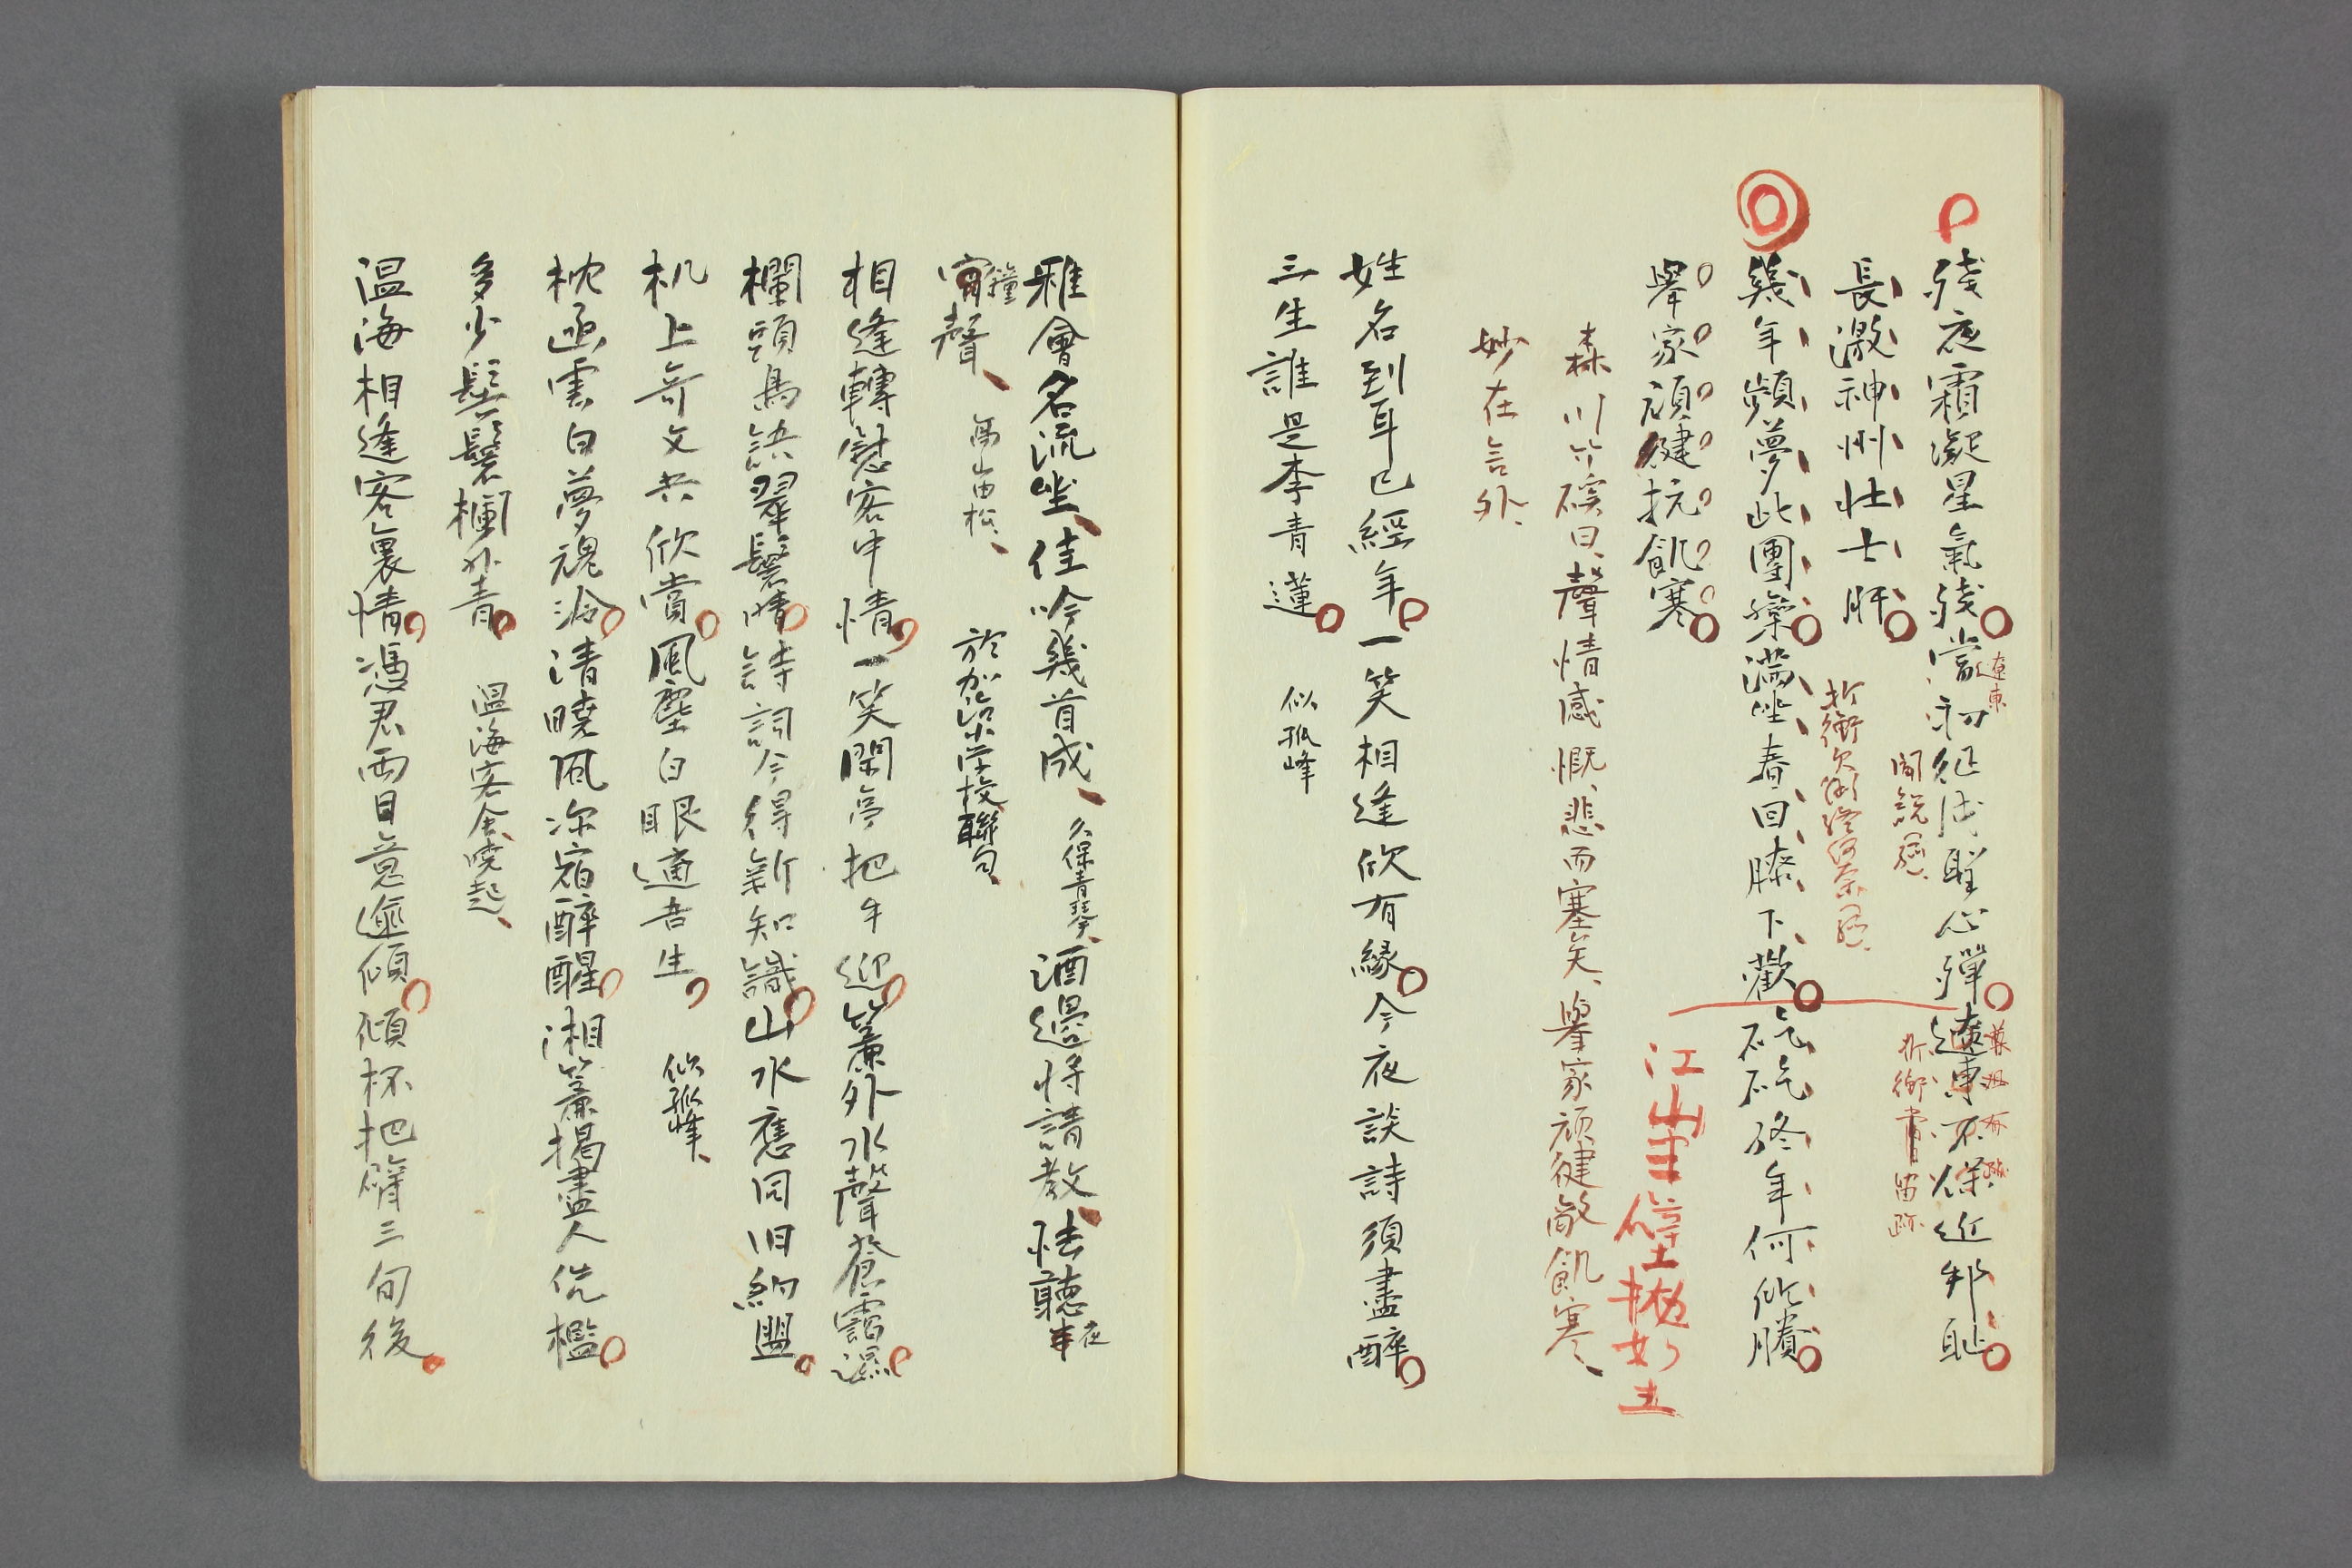 残夜霜凝星氣残當初征伐聖心殫遼東不保近邦恥
遼東
長激神州壮士肝
幾年頻夢此團欒満坐春回膝下歡矻矻終年何所贏
擧家頑健抗飢寒
江山
森川竹磎曰、聲情感慨、悲而塞矣、擧家頑健敵飢寒、
妙在言外、
姓名到耳已經年一笑相逢欣有縁今夜談詩須盡醉
三生誰是李青蓮 似孤峰
雅會名流坐、佳吟幾首成、久保青琴、酒邊将請教、怯聽夜
鐘聲、高山由松、於加治木学校聯句、
相逢轉慰客中情一笑閑亭把手迎簾外水聲蒼靄濕
欄頭鳥語翠鬟晴詩詞今得新知識山水應同旧約盟
机上奇文共欣賞風塵白眼適吾生 似孤峰、
枕函雲白夢魂冷清曉風涼宿醉醒湘簾掲盡人侊檻
多少髻鬟欄外青 温海客舎曉起、
温海相逢客裏情憑君西目意逾傾傾杯把臂三旬後